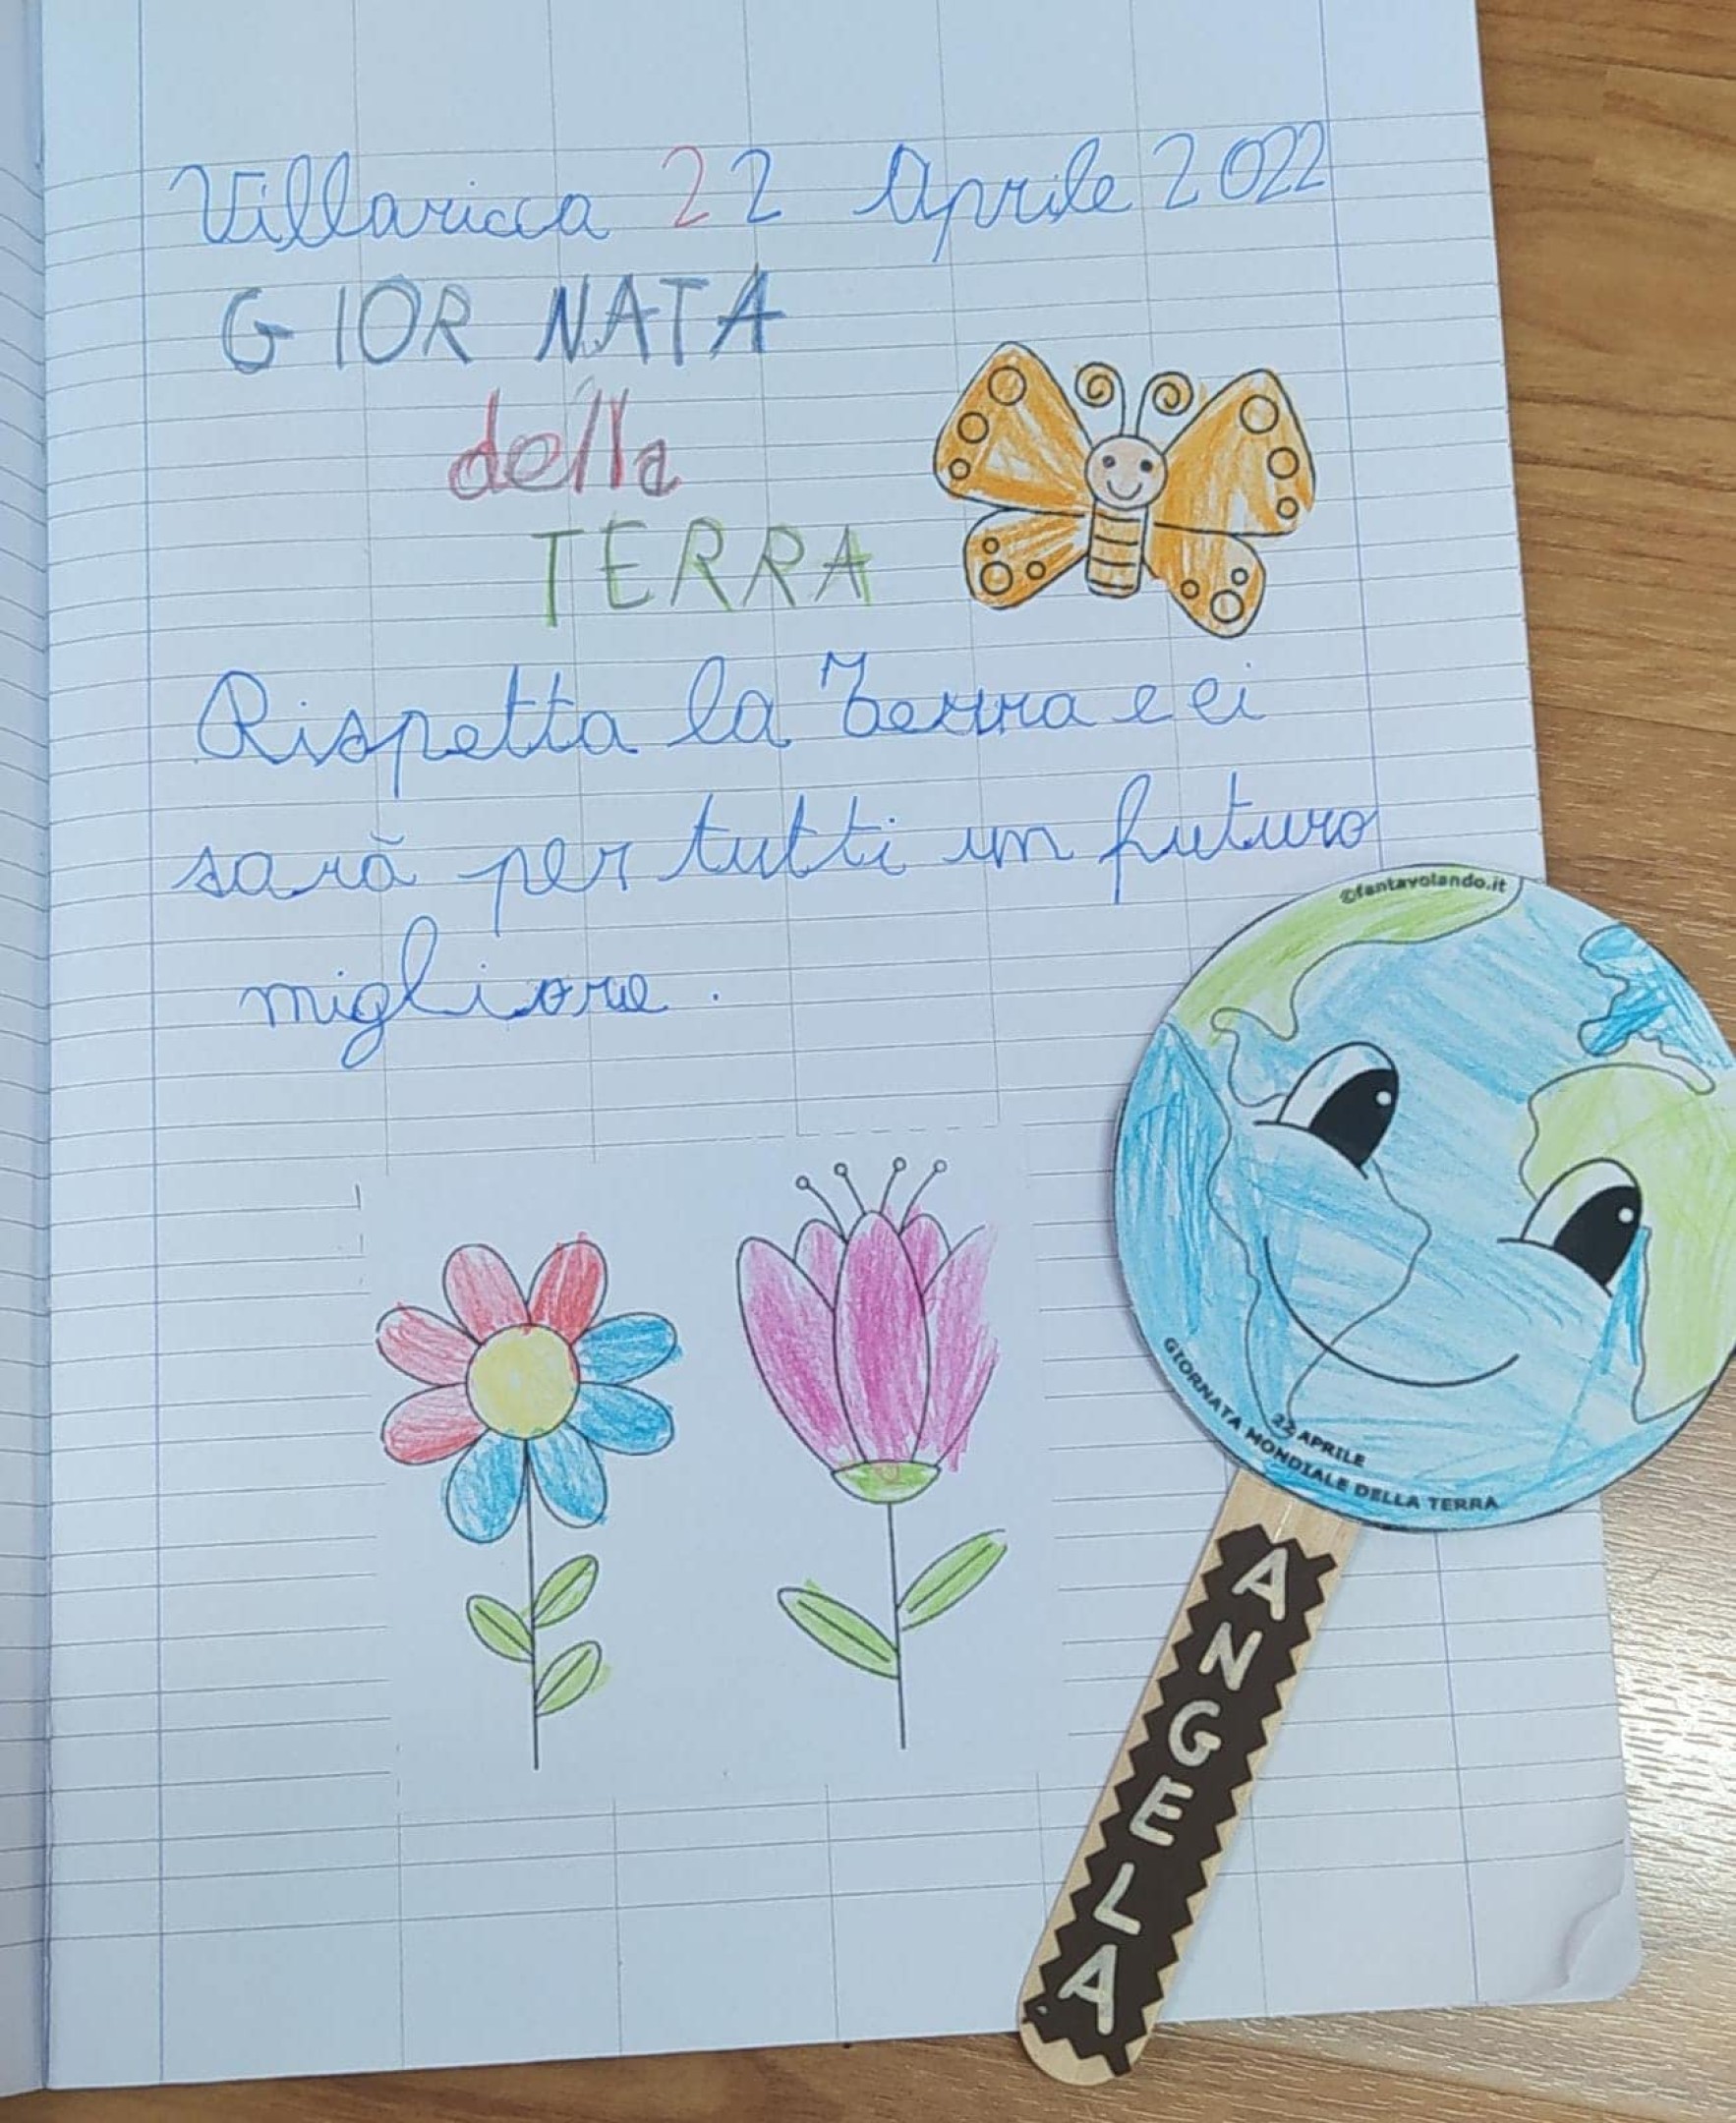 Villaricca 22 Aprile 2022
GIORNATA
della
TERRA
Rispetta la Terra e ci
sarà per tutti un futuro
migliore.
©fantavolando.it
22 APRILE
GIORNATA MONDIALE DELLA TERRA
ANGELA